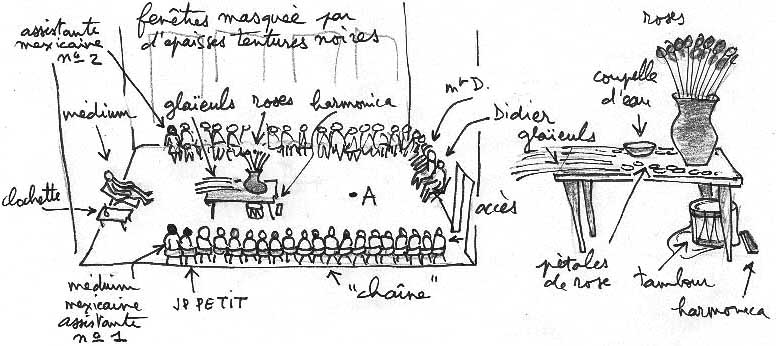 fenêtres masquée par
d'epaisses tentures noires
assistante
mexicaine
nº 2
médium
glaïeuls
roses
harmonica
mr D.
Didier
clochette
A
accès
médium
mexicaine
assistante
nº 1
JP PETIT
"chaîne"
roses
coupelle
d'eau
glaïeuls
pétales
de rose
tambour
harmonica